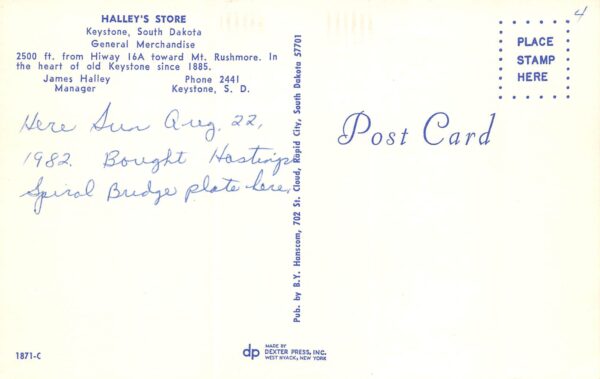 HALLEY'S STORE
Keystone, South Dakota
General Merchandise
2500 ft. from Hiway 16A toward Mt. Rushmore. In
the heart of old Keystone since 1885.
James Halley Phone 2441
Manager Keystone, S. D.
Here Sun Aug. 22,
1982. Bought Hastings
Spiral Bridge plate here.
Pub. by B.Y. Hanscom, 702 St. Cloud, Rapid City, South Dakota 57701
Post Card
4
PLACE
STAMP
HERE
1871-C
dp MADE BY
DEXTER PRESS, INC.
WEST NYACK, NEW YORK